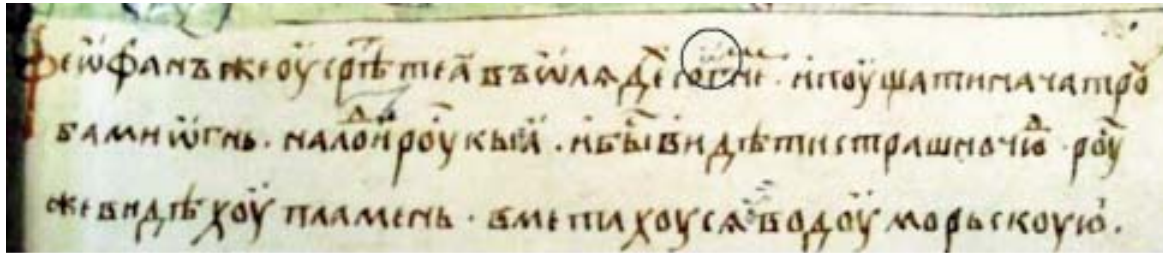 феѡфанъ же оусрѣте ѧ въ ѡлядеⷯ со ѡгнеⷨ . и поущати нача троу
бами ѡгнь . на лоⷣи роукыꙗ . и бы̑ видѣти страшно чюⷣ . роу
же видѣхоу пламень . вметахоусѧ в водоу морьскоую .